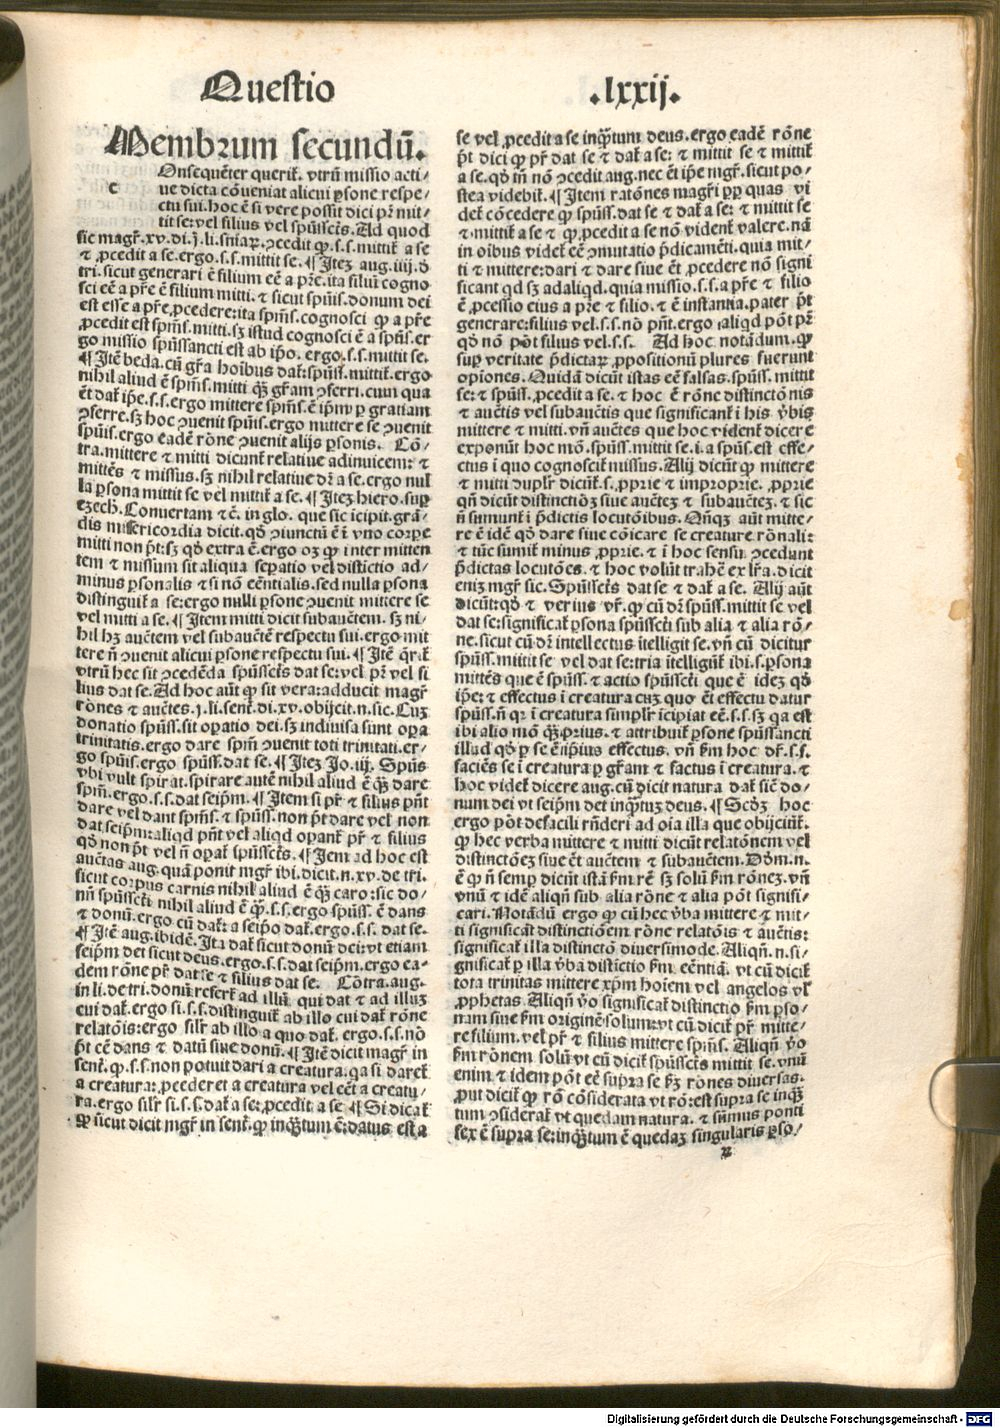 Questio
.lxxij.
Membrum secundū.
c Onsequēter querit᷑. vtrū missio acti/
ue dicta cōueniat alicui ꝑsone respe/
ctu sui. hoc ē si vere possit dici pr̄ mit/
tit se: vel filius vel spūssct̄s. Ad quod
sic magr̄. xv. di. j. li. sniaꝝ. ꝯcedit ꝙ. s.s. mittit᷑ a se
⁊ ꝓcedit a se. ergo. s.s. mittit se. ¶ Itez aug. iiij. d̄
tri. sicut generari ē filium eē a p̄re. ita filiū cogno
sci eē a p̄re ē filium mitti. ⁊ sicut spm̄s. donum dei
est esse a p̄re ꝓcedere: ita spm̄s. cognosci ꝙ a p̄re
ꝓcedit est spm̄s. mitti. sꝫ istud cognosci ē a spm̄s. er
go missio spūssancti est ab ip̄o. ergo. s.s. mittit se.
¶ Itē beda. cū gr̄a hoībus dat᷑: spūss. mittit᷑. ergo
nihil aliud ē spm̄s. mitti qꝫ gr̄am ꝯferri. cum qua
ēt dat᷑ ip̄e. s.s. ergo mittere spm̄s. ē ip̄m ꝑ gratiam
ꝯferre. sꝫ hoc ꝯuenit spūis. ergo mittere se ꝯuenit
spūis. ergo eadē rōne ꝯuenit alijs ꝑsonis. Cō/
tra. mittere ⁊ mitti dicunt᷑ relatiue adinuicem: ⁊
mittēs ⁊ missus. sꝫ nihil relatiue dr̄ a se. ergo nul
la ꝑsona mittit se vel mittit᷑ a se. ¶ Itez hiero. suꝑ
ezech. Conuertam ⁊ c̄. in glo. que sic īcipit. grā/
dis misericordia dicit. qd̄ ꝯiunctū ē ī vno corꝑe
mitti non pt̄: sꝫ qd̄ extra ē. ergo oꝫ ꝙ inter mitten
tem ⁊ missum sit aliqua seꝑatio vel distictio ad/
minus ꝑsonalis ⁊ si nō eēntialis. sed nulla ꝑsona
distinguit᷑ a se: ergo nulli ꝑsone ꝯuenit mittere se
vel mitti a se. ¶ Item mitti dicit subauctem. sꝫ ni/
hil hꝫ auctem vel subauctē respectu sui. ergo mit
tere n̄ ꝯuenit alicui ꝑsone respectu sui. ¶ Itē q̄rit᷑
vtrū hec sit ꝯcedēda spūsscēs dat se: vel pr̄ vel fi
lius dat se. Ad hoc aūt ꝙ sit vera: adducit magr̄
rōnes ⁊ auctes. j. li. sent̄. di. xv. obijcit. n. sic. Cuꝫ
donatio spūss. sit oꝑatio dei. sꝫ indiuisa sunt oꝑa
trinitatis. ergo dare spm̄ ꝯuenit toti trinitati. er/
go spm̄s. ergo spūss. dat se. ¶ Itez Jo. iij. Spūs
vbi vult spirat. spirare autē nihil aliud ē qꝫ dare
spm̄. ergo. s.s. dat seip̄m. ¶ Item si pr̄ ⁊ filius pn̄t
dare vel dant spm̄s. ⁊ spūss. non pt̄ dare vel non
dat seip̄m: aliqd pn̄t vel aliqd oꝑant᷑ pr̄ ⁊ filius
qd̄ non pt̄ vel n̄ oꝑat᷑ spūsscēs. ¶ Jem ad hoc est
auctas aug. quā ponit mgr̄ ibi. dicit. n. xv. de tri.
sicut corpus carnis nihil aliud ē qꝫ caro: sic do/
nū spūsscti nihil aliud ē qꝫ. s.s. ergo spūss. ē dans
⁊ donū. ergo cū dat᷑: a seipo dat᷑. ergo. s.s. dat se.
¶ Itē aug. ibidē. Ita dat᷑ sicut donū dei: vt etiam
seip̄m det sicut deus. ergo. s.s. dat seip̄m. ergo ea/
dem rōne pr̄ dat se ⁊ filius dat se. Cōtra. aug.
in li. de tri. donū refert᷑ ad illū qui dat ⁊ ad illuꝫ
cui dat᷑. ergo si. s.s. distinguit᷑ ab illo cui dat᷑ rōne
relatōis: ergo silr̄ ab illo a quo dat᷑. ergo. s.s. nō
pt̄ eē dans ⁊ datū siue donū. ¶ Itē dicit magr̄ in
sent̄. ꝙ. s.s. non potuit dari a creatura. qa si daret᷑
a creatura: ꝓcederet a creatura vel eēt a creatu/
ra. ergo silr̄ si. s.s. dat᷑ a se: ꝓcedit a se. ¶ Si dicat᷑
ꝙ sicut dicit mgr̄ in sent̄. ꝙ inqꝫtum ē: datus est a
se vel ꝓcedit a se inqꝫtum deus. ergo eadē rōne
pt̄ dici ꝙ pr̄ dat se ⁊ dat᷑ a se: ⁊ mittit se ⁊ mittit᷑
a se. qd̄ tn̄ nō ꝯcedit aug. nec ēt ip̄e mgr̄. sicut po/
stea videbit᷑. ¶ Item ratōnes magr̄i ꝑꝑ quas vi
det᷑ cōcedere ꝙ spūss. dat se ⁊ dat᷑ a se: ⁊ mittit se
⁊ mittit᷑ a se ⁊ ꝙ ꝓcedit a se nō vident᷑ valere. nā
in oībus videt᷑ eē ꝯmutatio p̄dicamēti. quia mit/
ti ⁊ mittere: dari ⁊ dare siue ēt ꝓcedere nō signi
ficant qd sꝫ adaliqd. quia missio. s.s. a p̄re ⁊ filio
ē ꝓcessio eius a p̄re ⁊ filio. ⁊ ē instantia. pater pt̄
generare: filius vel. s.s. nō pn̄t. ergo aliqd pōt pr̄
qd̄ nō pōt filius vel. s.s. Ad hoc notādum. ꝙ
suꝑ veritate p̄dictaꝝ ꝓpositionū plures fuerunt
opiōnes. Quidā dicūt istas eē falsas. spūss. mittit
se: ⁊ spūss. ꝓcedit a se. ⁊ hoc ē rōne distinctōnis
⁊ auctis vel subauctis que significant᷑ i his v̄bis
mittere ⁊ mitti. vn̄ auctes que hoc vident᷑ dicere
exponūt hoc mō. spūss. mittit se. i. a spūs. est effe/
ctus i quo cognoscit᷑ missus. Alij dicūt ꝙ mittere
⁊ mitti duplr̄ dicūt᷑. s. ꝓprie ⁊ improprie. ꝓprie
qn̄ dicūt distinctiōꝫ siue auctez ⁊ subauctez. ⁊ sic
n̄ sumunt᷑ i p̄dictis locutōibus. Qn̄qꝫ aūt mitte/
re ē idē qd̄ dare siue cōicare se creature rōnali:
⁊ tūc sumit᷑ minus ꝓprie. ⁊ i hoc sensu ꝯcedunt᷑
p̄dictas locutōes. ⁊ hoc volūt trahē ex lr̄a. dicit
enim mgr̄ sic. Spūsscēs dat se ⁊ dat᷑ a se. Alij aūt
dicūt: qd̄ ⁊ verius vr̄. ꝙ cū dr̄ spūss. mittit se vel
dat se: significat᷑ ꝑsona spūsscti sub alia ⁊ alia rō/
ne. sicut cū dr̄ intellectus itelligit se. vn̄ cū dicitur
spūss. mittit se vel dat se: tria itelligūt᷑ ibi. s. ꝑsona
mittēs que ē spūss. ⁊ actio spūsscti que ē idez qd̄
ip̄e: ⁊ effectus i creatura cuꝫ quo ēt effectu datur
spūss. n̄ qꝛ i creatura simplr̄ icipiat eē. s.s. sꝫ qa est
ibi alio mō qꝫ prius. ⁊ attribuit᷑ ꝑsone spūssancti
illud qd̄ ꝑ se ē ip̄ius effectus. vn̄ fm̄ hoc dr̄. s.s.
faciēs se i creatura ꝑ gr̄am ⁊ factus i creatura. ⁊
hoc videt᷑ dicere aug. cū dicit natura dat᷑ sic̄ do/
num dei vt seip̄m det inqꝫtuꝫ deus. ¶ Scd̄ꝫ hoc
ergo pōt defacili rn̄deri ad oīa illa que obijciūt᷑.
ꝙ hec verba mittere ⁊ mitti dicūt relatōnem vel
distinctōeꝫ siue ēt auctem ⁊ subauctem. Dōm. n.
ē ꝙ n̄ semꝑ dicūt istā fm̄ rē sꝫ solū fm̄ rōnez. vn̄
vnū ⁊ idē aliqn̄ sub alia rōne ⁊ alia pōt signifi/
cari. Notādū ergo ꝙ cū hec v̄ba mittere ⁊ mit/
ti significāt distinctiōem rōne relatōis ⁊ auctis:
significat᷑ illa distinctō diuersimode. Aliqn̄. n. si/
gnificat᷑ ꝑ illa v̄ba distictio fm̄ eēntiā. vt cū dicit᷑
tota trinitas mittere xp̄m hoiem vel angelos vl̄
ꝓphetas. Aliqn̄ v̄o significat᷑ distinctio fm̄ ꝑso/
nam siue fm̄ originē solum: vt cū dicit᷑ pr̄ mitte/
re filium. vel pr̄ ⁊ filius mittere spm̄s. Aliqn̄ v̄o
fm̄ rōnem solū vt cū dicit᷑ spūsscēs mittit se. vnū
enim ⁊ idem pōt eē supra se fꝫ rōnes diuersas.
ꝓut dicit᷑ ꝙ rō cōsiderata vt rō: est supra se inqꝫ
tum ꝯsiderat᷑ vt quedam natura. ⁊ sūmus ponti
fex ē supra se: inqꝫtum ē quedaꝫ singularis ꝑso/
Digitalisierung gefördert durch die Deutsche Forschungsgemeinschaft - DFG